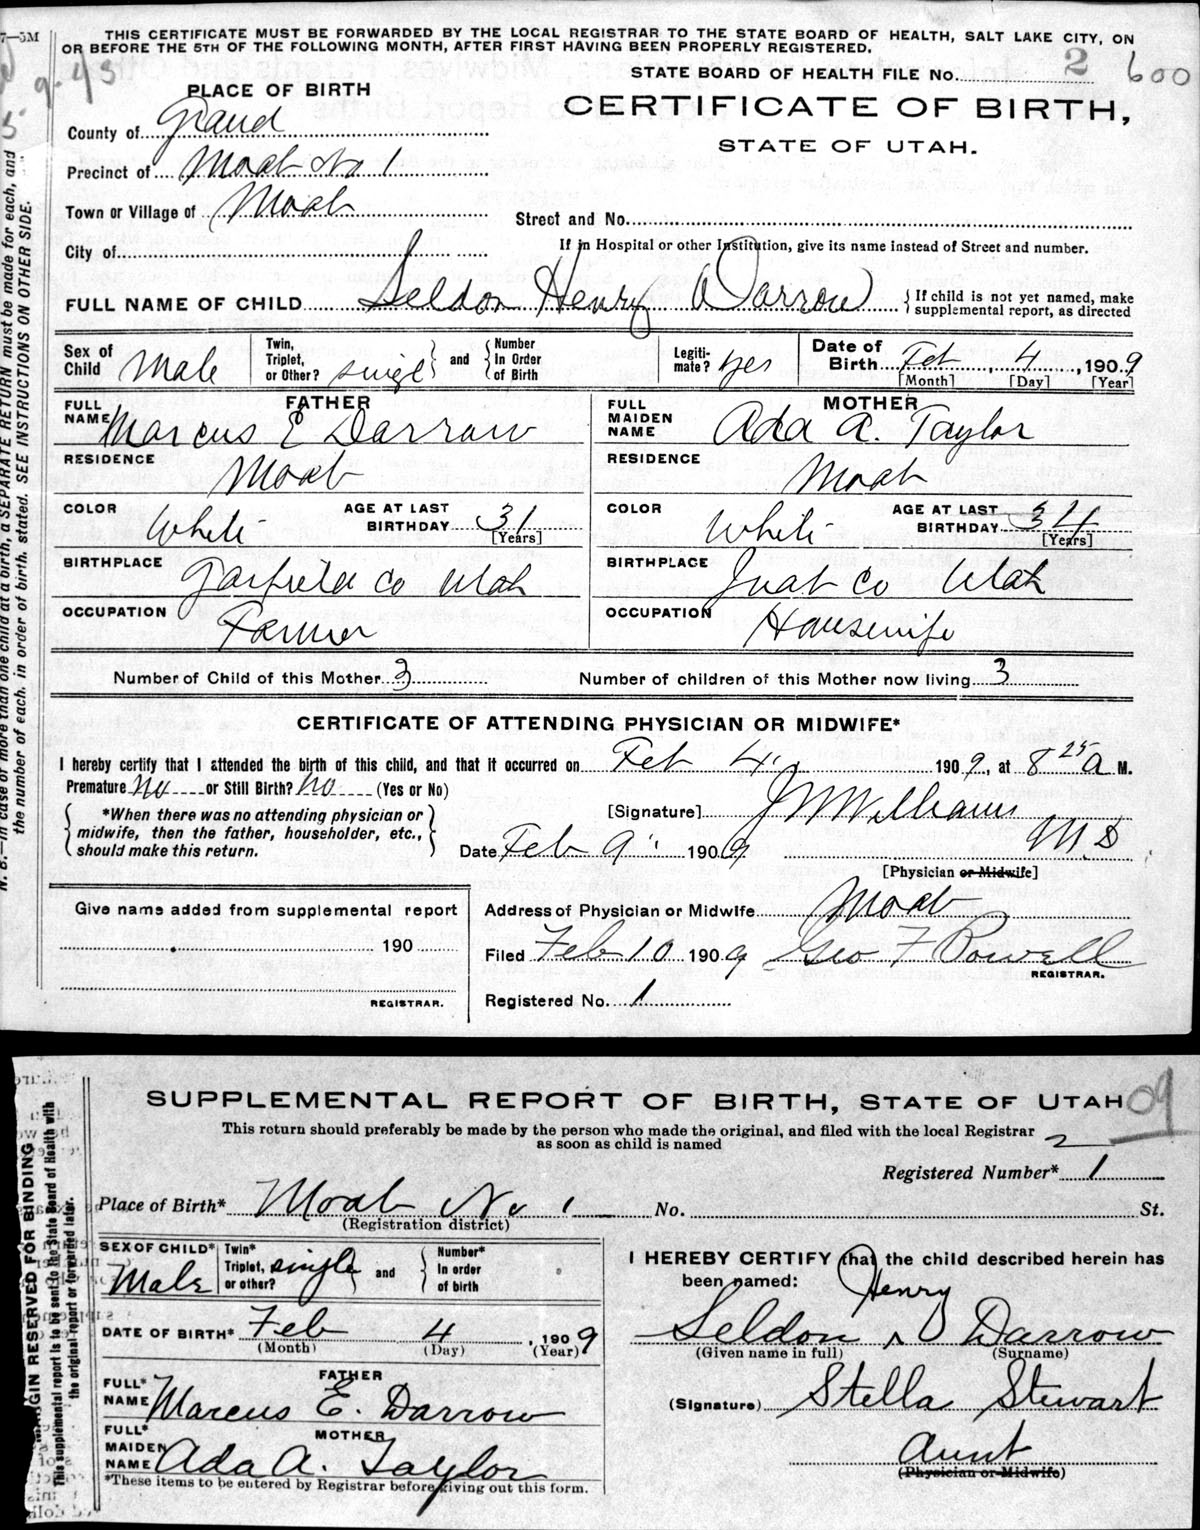 7—5M
THIS CERTIFICATE MUST BE FORWARDED BY THE LOCAL REGISTRAR TO THE STATE BOARD OF HEALTH, SALT LAKE CITY, ON
OR BEFORE THE 5TH OF THE FOLLOWING MONTH, AFTER FIRST HAVING BEEN PROPERLY REGISTERED.
STATE BOARD OF HEALTH FILE No. 2 600
PLACE OF BIRTH
CERTIFICATE OF BIRTH,
STATE OF UTAH.
County of Grand
Precinct of Moab No 1
Town or Village of Moab
Street and No.
City of
If in Hospital or other Institution, give its name instead of Street and number.
FULL NAME OF CHILD Seldon Henry Darrow { If child is not yet named, make
supplemental report, as directed
Sex of Child Male
Twin, Triplet, or Other? single } and { Number In Order of Birth
Legiti-mate? yes
Date of Birth Feb 4, 1909
[Month] [Day] [Year]
FATHER
FULL NAME Marcus E Darrow
MOTHER
FULL MAIDEN NAME Ada A. Taylor
RESIDENCE Moab
RESIDENCE Moab
COLOR White AGE AT LAST BIRTHDAY 31 [Years]
COLOR White AGE AT LAST BIRTHDAY 34 [Years]
BIRTHPLACE Garfield Co Utah
BIRTHPLACE Juab Co Utah
OCCUPATION Farmer
OCCUPATION Housewife
Number of Child of this Mother 3
Number of children of this Mother now living 3
CERTIFICATE OF ATTENDING PHYSICIAN OR MIDWIFE*
I hereby certify that I attended the birth of this child, and that it occurred on Feb 4, 1909, at 8 25 a M.
Premature No or Still Birth? No (Yes or No)
{ *When there was no attending physician or
midwife, then the father, householder, etc.,
should make this return. }
[Signature] J W Williams
M.D
Date Feb 9, 1909
[Physician or Midwife]
Give name added from supplemental report
190
REGISTRAR.
Address of Physician or Midwife Moab
Filed Feb 10 1909 Geo F Powell
REGISTRAR.
Registered No. 1
N. B.—In case of more than one child at a birth, a SEPARATE RETURN must be made for each, and
the number of each, in order of birth, stated. SEE INSTRUCTIONS ON OTHER SIDE.
SUPPLEMENTAL REPORT OF BIRTH, STATE OF UTAH 09
This return should preferably be made by the person who made the original, and filed with the local Registrar
as soon as child is named
2
Registered Number* 1
Place of Birth* Moab No 1 No. St.
(Registration district)
SEX OF CHILD* Male
Twin* Triplet, or other? single } and { Number* In order of birth
DATE OF BIRTH* Feb 4, 1909
(Month) (Day) (Year)
FATHER
FULL* NAME Marcus E. Darrow
MOTHER
FULL* MAIDEN NAME Ada A. Taylor
*These items to be entered by Registrar before giving out this form.
I HEREBY CERTIFY that the child described herein has
been named:
Henry
Seldon ^ Darrow
(Given name in full) (Surname)
(Signature) Stella Stewart
Aunt
(Physician or Midwife)
MARGIN RESERVED FOR BINDING
This supplemental report is to be sent to the State Board of Health with
the original report or forwarded later.